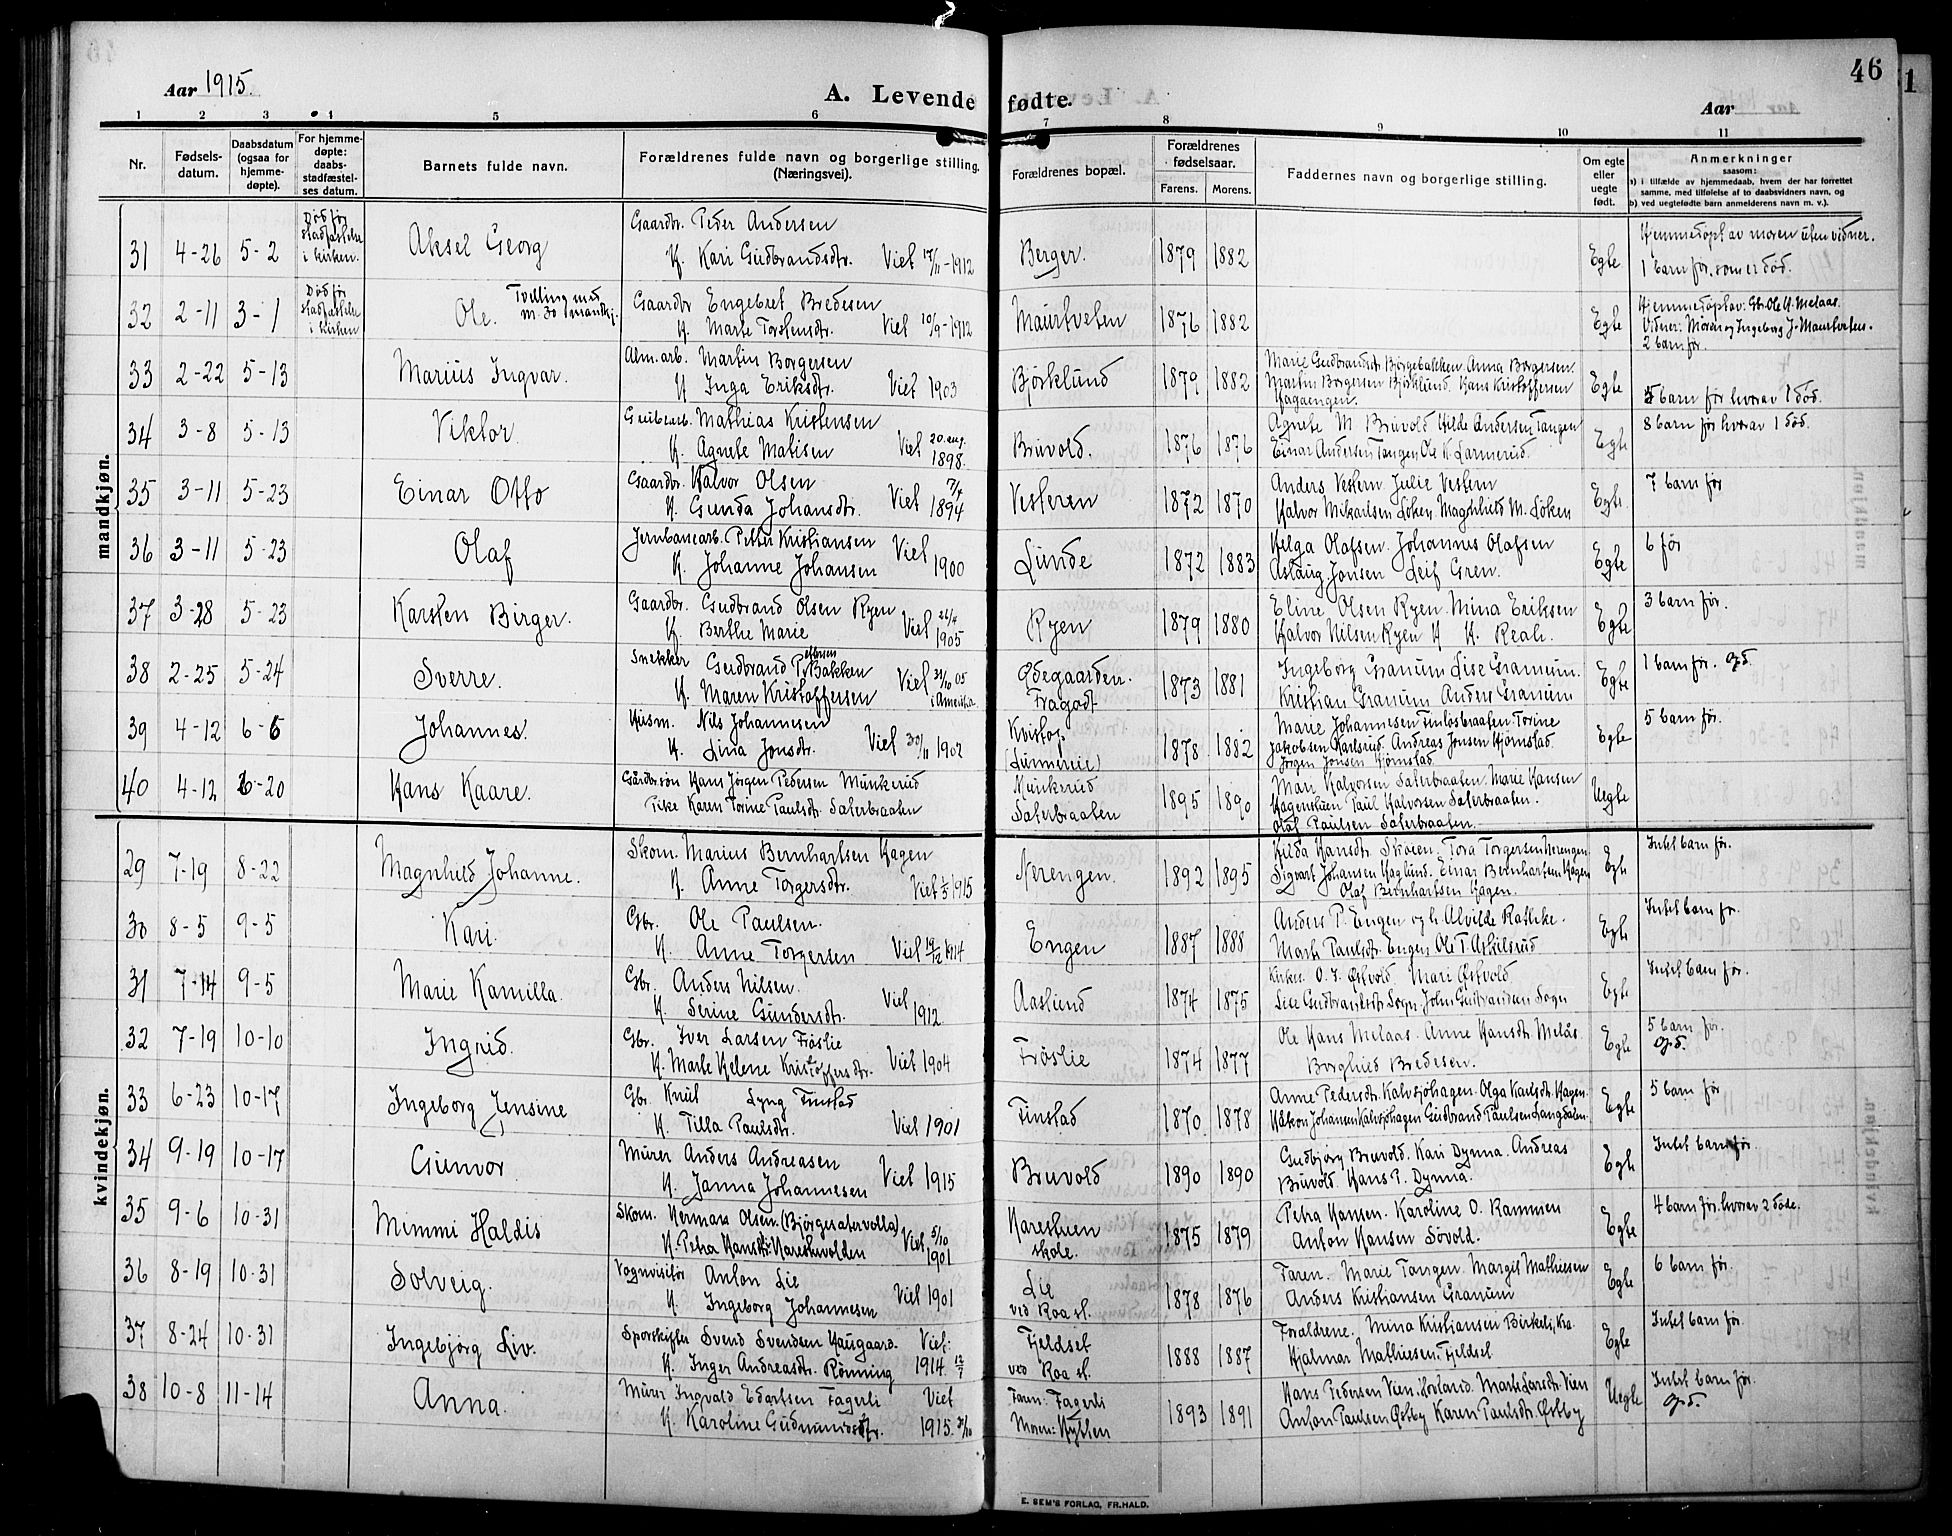 46
Aar 1915.
A. Levende fødte.
Aar
1 2 3 4 5 6 7 8 9 10 11
Nr. Fødsels-datum. Daabsdatum (ogsaa for hjemme-døpte). For hjemme-døpte: daabs-stadfæstel-ses datum. Barnets fulde navn. Forældrenes fulde navn og borgerlige stilling. (Næringsvei). Forældrenes bopæl. Forældrenes fødselsaar. Farens. Morens. Faddernes navn og borgerlige stilling. Om egte eller uegte født. Anmerkninger saasom: a) i tilfælde av hjemmedaab, hvem der har forrettet samme, med tilføielse af to daabsvidners navn, og b) ved uegtefødte barn anmelderens navn m. v.).
mandkjøn.
31 4-26 5-2 Død før stadfæstelse i kirken. Aksel Georg Gaardbr. Peder Andersen
H. Kari Gudbrandsdtr. Viet 17/11-1912 Berger. 1879 1882 Egte Hjemmedøpt av moren uten vidner.
1 barn før, som er død.
32 2-11 3-1 Død før stadfæstelse i kirken Ole. Tvilling med m. 30 mandkj. Gaardbr Engebret Bredesen
H. Marte Torstensdtr. Viet 10/9-1912 Maurtveten 1876 1882 Egte Hjemmedøpt av: Gbr. Ole H. Melaas.
Vidner: Moren og Ingeborg J. Maurtveten.
2 barn før.
33 2-22 5-13 Marius Ingvar. Alm.arb. Martin Borgersen
H. Inga Eriksdtr. Viet 1903 Bjørklund 1879 1882 Marie Gudbrandsdt. Bjørgebakken. Anna Borgersen.
Martin Borgersen Bjørklund. Hans Kristoffersen
Hagaengen. Egte 5 barn før hvorav 1 død.
34 3-8 5-13 Viktor. Mathias Kristensen
H. Agnete Matisen Viet 20. aug. 1898. Bruvold. 1876 1876 Agnete M. Bruvold Hilde Andersen Tangen
Einar Andersen Tangen Ole K. Larmerud. Egte 8 barn før hvorav 1 død.
35 3-11 5-23 Einar Otto Gaardbr. Halvor Olsen
H. Gunda Johansdtr. Viet 7/4 1894 Vesteren 1872 1870 Anders Vestern Julie Vestern
Halvor Mikaelsen Løken Magnhild M. Løken Egte. 7 barn før
36 3-11 5-23 Olaf Jernbanearb. Petter Kristiansen
H. Johanne Johansen Viet 1900 Lunde 1872 1883 Helga Olafsen. Johannes Olafsen
Aslaug Jonsen Leif Gren. Egte 6 før
37 3-28 5-23 Karsten Birger. Gaardbr. Gudbrand Olsen Ryen
H. Berthe Marie Viet 26/4 1905 Ryen 1879 1880 Eline Olsen Ryen. Mina Eriksen
Halvor Nilsen Ryen H. H. Reah. Egte 3 barn før.
38 2-25 5-24 Sverre. Snekker Gudbrand Pettersen Bakken
H. Maren Kristoffersen Viet 05 i Amerika Ødegaarden. Fragodt 1873 1881 Ingeborg Granum Lise Granum.
Kristian Granum Anders Granum Egte 1 barn før. Gjd.
39 4-12 6-6 Johannes. Husm. Nils Johannesen
H. Lina Jonsdtr. Viet 30/11 1902 Kvistog (Lunnereie) 1878. 1882 Marie Johannesen Finlosbraaten. Torine
Jakobsen Karlsrud. Andreas Jonsen Hjørnstad
Jørgen Jonsen Hjørnstad. Egte 5 barn før.
40 4-12 6-20 Hans Kaare. Gårdbrsøn Hans Jørgen Pedersen Munkerud
Pike Karen Torine Paulsdtr. Sæterbraaten Munkerud
Sæterbraaten 1895 1890 Mari Halvorsen Sæterbraaten. Marie Hansen
Hagenstuen Paul Halvorsen Sæterbraaten.
Olaf Paulsen Sæterbraaten. Uegte
kvindekjøn.
29 7-19 8-22 Magnhild Johanne. Skom. Marius Bernhartsen Hagen
H. Anne Torgersdtr. Viet 1/5 1915 Nerengen. 1892 1895 Hilda Hansdtr. Skaren. Tora Torgersen Nerengen
Sigvart Johansen Haglund. Einar Bernhartsen Hagen
Olaf Bernhartsen Hagen. Egte Intet barn før.
30 8-5 9-5 Kari. Gbr. Ole Paulsen.
H. Anne Torgersen Viet 19/12 1914 Engen 1887 1888 Anders P. Engen og h. Alvilde Rathke.
Marte Paulsdtr. Engen Ole T. Askilsrud Egte Intet barn før.
31 7-14 9-5 Marie Kamilla. Gbr. Anders Nilsen.
H. Serine Gundersdtr. Viet 1912. Aaslund 1874 1875 Kirkes. O. J. Østvold Mari Østvold.
Lise Gudbrandsdtr Sogn John Gudbrandsen Sogn Egte Intet barn før.
32 7-19 10-10 Ingrid. Gbr. Iver Larsen Frøslie
H. Marte Helene Kristoffersdtr. Viet 1904 Frøslie 1874 1877 Ole Hans Melaas. Anne Hansdtr Melås
Borghild Bredesen. Egte 5 barn før.
Gjd.
33 6-23 10-17 Ingeborg Jensine Gbr. Knut Lyng Finstad
H. Tilla Paulsdtr. Viet 1901 Finstad 1870 1878 Anne Pedersdtr. Kalvsjøhagen. Olga Karlsdtr. Hagen.
Håkon Johansen Kalvsjøhagen Gudbrand Paulsen Langdalen. Egte 5 barn før
34 9-19 10-17 Gunvor Murer Anders Andreasen
H. Janna Johannesen Viet 1915 Bruvold 1890 1890 Gudbjørg Bruvold. Kari Dynna. Andreas
Bruvold. Hans P. Dynna. Egte Intet barn før.
35 9-6 10-31 Mimmi Haldis Skom. Herman Olsen (Bjørgesætervolla)
H. Petra Hansdtr. Harestuvolden Viet 5/10 1901 Harestuen skole. 1875 1879 Petra Hansen. Karoline O. Ramnsen
Anton Hansen Søvold. Egte 4 barn før. hvorav 2 døde.
36 8-19 10-31 Solveig. Vognvisitør Anton Lie
H. Ingeborg Johannesen Viet 1901 Lie
ved Roa st. 1878 1876 Faren. Marie Tangen. Margit Mathiesen
Anders Kristiansen Granum Egte 6 barn før.
37 8-24 10-31 Ingebjørg Liv. Sporskifter Svend Svendsen Haugaard.
H. Inger Andreasdtr. Rønning Viet: 1914 12/7 Fjeldset
ved Roa st. 1888 1887 Forældrene. Mina Kristiansen Birkeli, Kra.
Hjalmar Mathiesen Fjeldset Egte Intet barn før.
38 10-8 11-14 Anna. Murer Ingvald Edartsen Fagerli
H. Karoline Gudmundsdtr. Viet 1915. 30/10 Faren: Fagerli
Moren: Hytten 1893 1891 Hans Pedersen Vien, Hovland. Marte Larsdtr. Vien
Anton Paulsen Østby Karen Paulsdtr. Østby Uegte Intet barn før.
Gjd.
E. SEM'S FORLAG, FR.HALD.